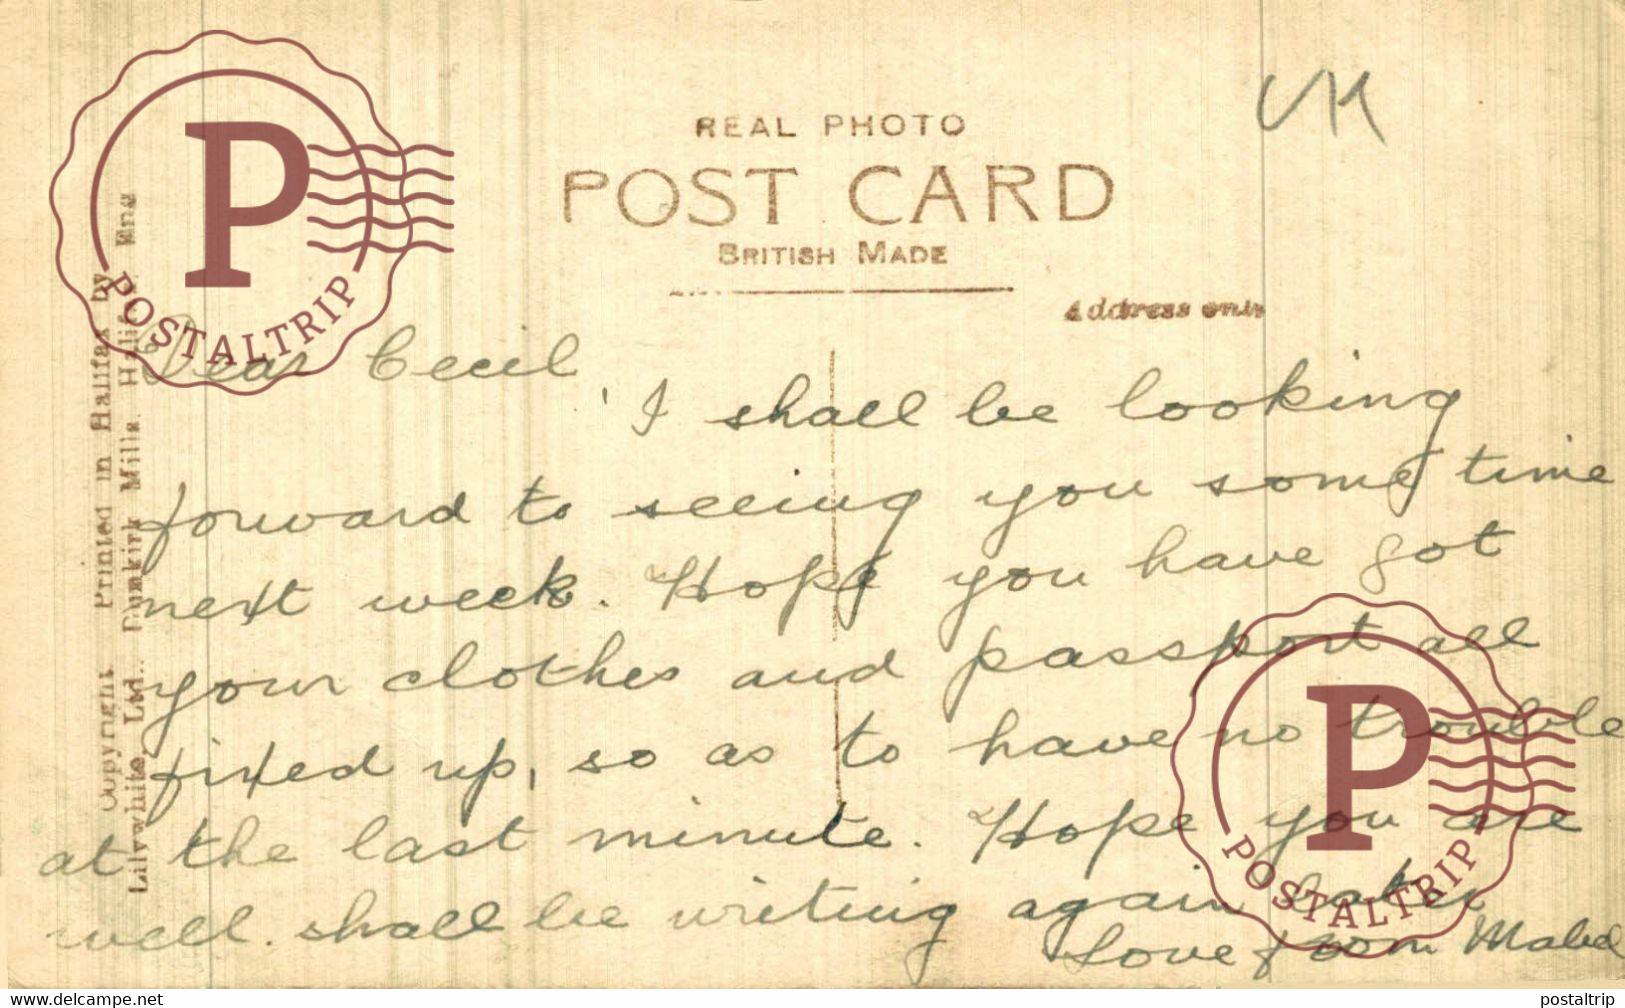 REAL PHOTO
POST CARD
BRITISH MADE
Address only
UK
Copyright Printed in Halifax by
Lilywhite Ltd., Dunkirk Mills, Halifax Eng
Dear Cecil
I shall be looking
forward to seeing you some time
next week. Hope you have got
your clothes and passport all
fixed up, so as to have no trouble
at the last minute. Hope you are
well. shall be writing again later
Love from Mabel
P
POSTALTRIP
P
POSTALTRIP
www.delcampe.net
postaltrip